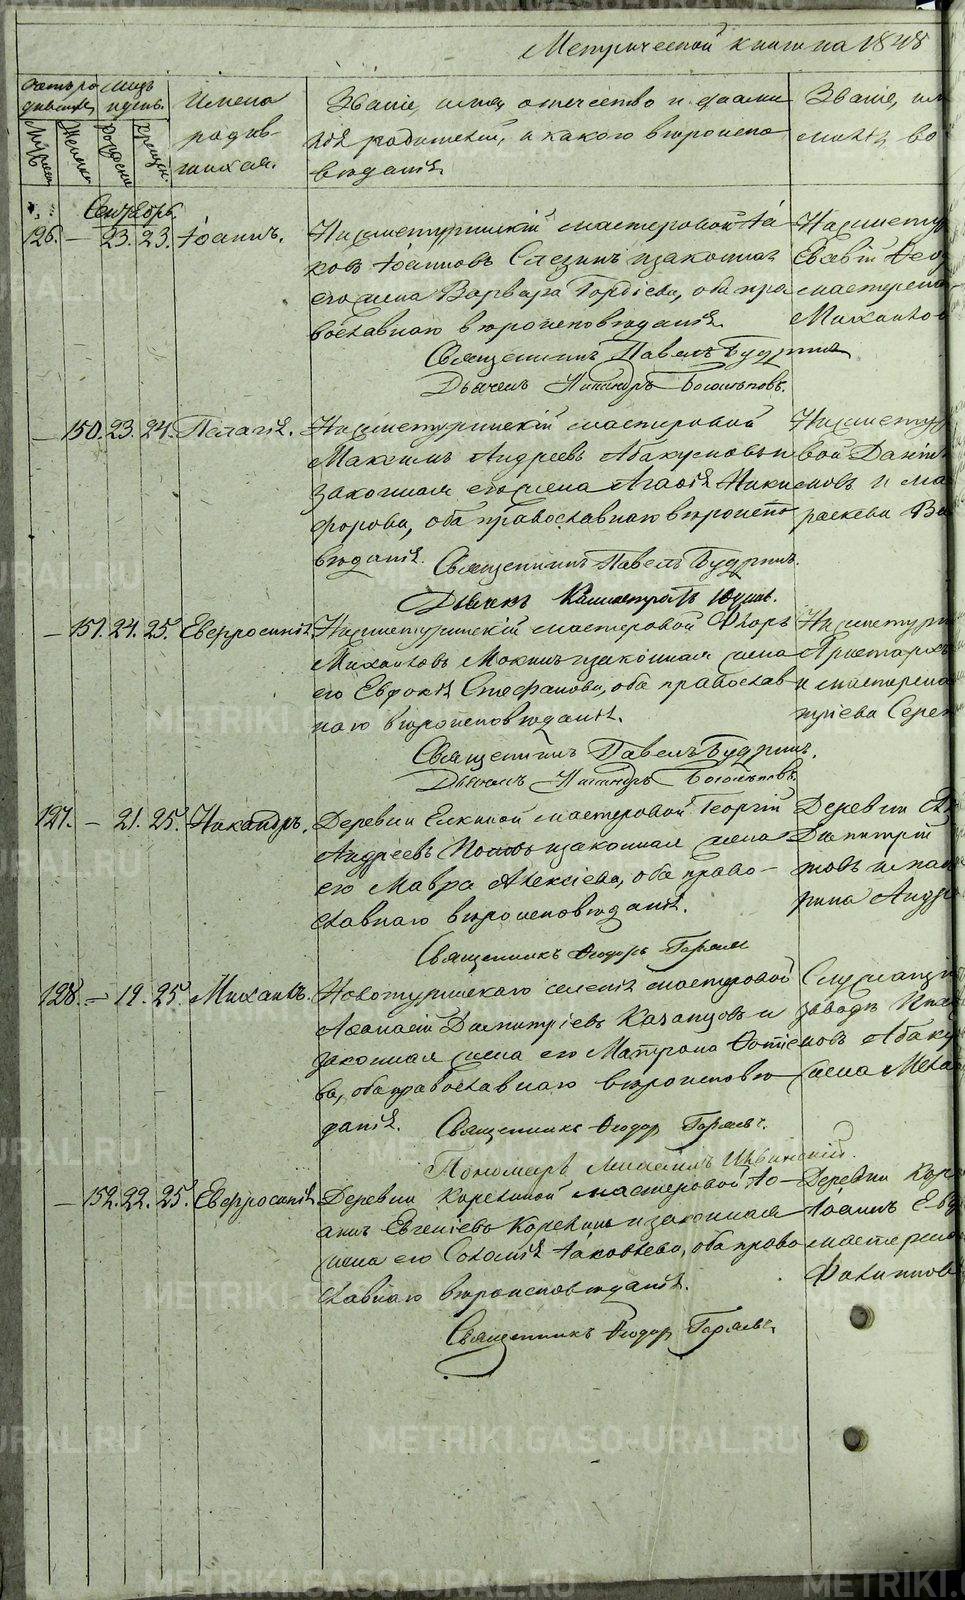 Метрической книги на 1848
Счетъ ро
дившихся
Мѣсяцъ
и день.
Мужеска
Женска
Рожденія
Крещен.
Имена
родив-
шихся.
Званіе, имя, отечество и фами
лія родителей, и какого вѣроиспо
вѣданія.
Званіе, им
милія, во
Сентябрь.
126. — 23. 23. Іоаннъ.
Нижнетуринскій мастеровой Іа
ковъ Іоанновъ и законная
его жена Варвара Гордіева, оба пра
вославнаго вѣроисповѣданія.
Священникъ Павелъ Будринъ
Дьячекъ Никандръ
Нижнетур
Евсевій Ѳео
мастероваго
Михайлов
— 150. 23. 24. Пелагія.
Нижнетуринскій мастеровой
Максимъ Андреевъ Абакумовъ и
законная его жена Агаѳія Ники
форова, оба православнаго вѣроиспо
вѣданія. Священникъ Павелъ Будринъ.
Дьячекъ Каллистратъ Юдинъ.
Нижнетур
вой Даніил
мовъ и ма
раскева Ва
— 151. 24. 25. Евфросинія.
Нижнетуринскій мастеровой Флоръ
Михайловъ Мокинъ и законная жена
его Евдокія Стефанова, оба православ
наго вѣроисповѣданія.
Священникъ Павелъ Будринъ.
Дьячекъ Никандръ
Нижнетури
Аристархъ
и мастерова
трiева Серг
127. — 21. 25. Никандръ.
Деревни Елкиной мастеровой Георгій
Андреевъ Поповъ и законная жена
его Мавра Алексіева, оба право-
славнаго вѣроисповѣданія.
Священникъ Ѳеодоръ
Деревни Е
Димитрій
рина Андр
128. — 19. 25. Михаилъ.
Новотуринскаго селенія мастеровой
Аѳанасій Димитріевъ Казанцовъ и
законная жена его Матрона Фотіе
ва, оба православнаго вѣроисповѣ
данія. Священникъ Ѳеодоръ
Пономарь
Служащій
завода
новъ Абаку
жена Мела
— 152. 22. 25. Евфросинія.
Деревни Корелиной мастеровой Іо-
аннъ Евгеніевъ Корелинъ и законная
жена его Соломія Іаковлева, оба право
славнаго вѣроисповѣданія.
Священникъ Ѳеодоръ
Деревни Кор
Іоаннъ Евд
мастерова
Филиппов
METRIKI.GASO-URAL.RU